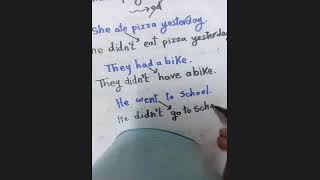 She ate pizza yesterday.
he didn't eat pizza yesterday
They had a bike.
They didn't have a bike.
He went to school.
He didn't go to scho